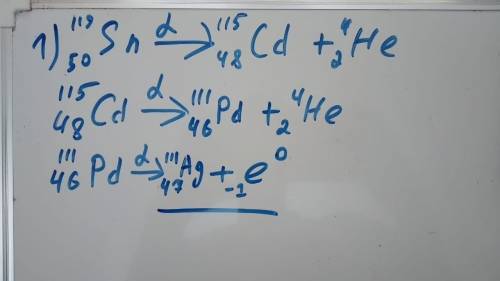 1) ¹¹⁹₅₀Sn →α ¹¹⁵₄₈Cd + ⁴₂He
¹¹⁵₄₈Cd →α ¹¹¹₄₆Pd + ⁴₂He
¹¹¹₄₆Pd →α ¹¹¹₄₇Ag + ₋₁e⁰